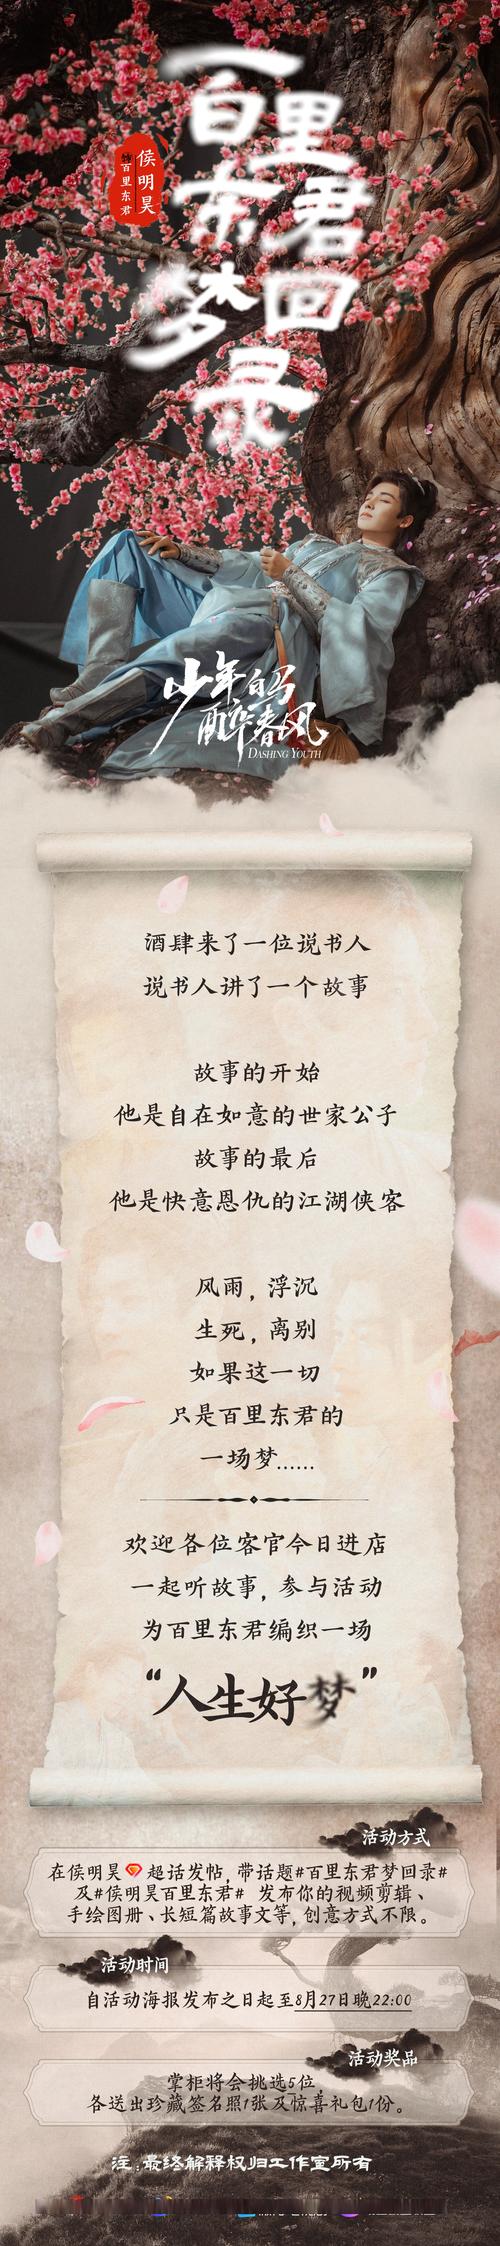 百里
东君
梦回
录
侯明昊
饰百里东君
少年白马
醉春风
DASHING YOUTH
酒肆来了一位说书人
说书人讲了一个故事
故事的开始
他是自在如意的世家公子
故事的最后
他是快意恩仇的江湖侠客
风雨，浮沉
生死，离别
如果这一切
只是百里东君的
一场梦……
欢迎各位客官今日进店
一起听故事，参与活动
为百里东君编织一场
“人生好梦”
活动方式
在侯明昊超话发帖，带话题#百里东君梦回录#
及#侯明昊百里东君# 发布你的视频剪辑、
手绘图册、长短篇故事文等，创意方式不限。
活动时间
自活动海报发布之日起至8月27日晚22:00
活动奖品
掌柜将会挑选5位，
各送出珍藏签名照1张及惊喜礼包1份。
注：最终解释权归工作室所有